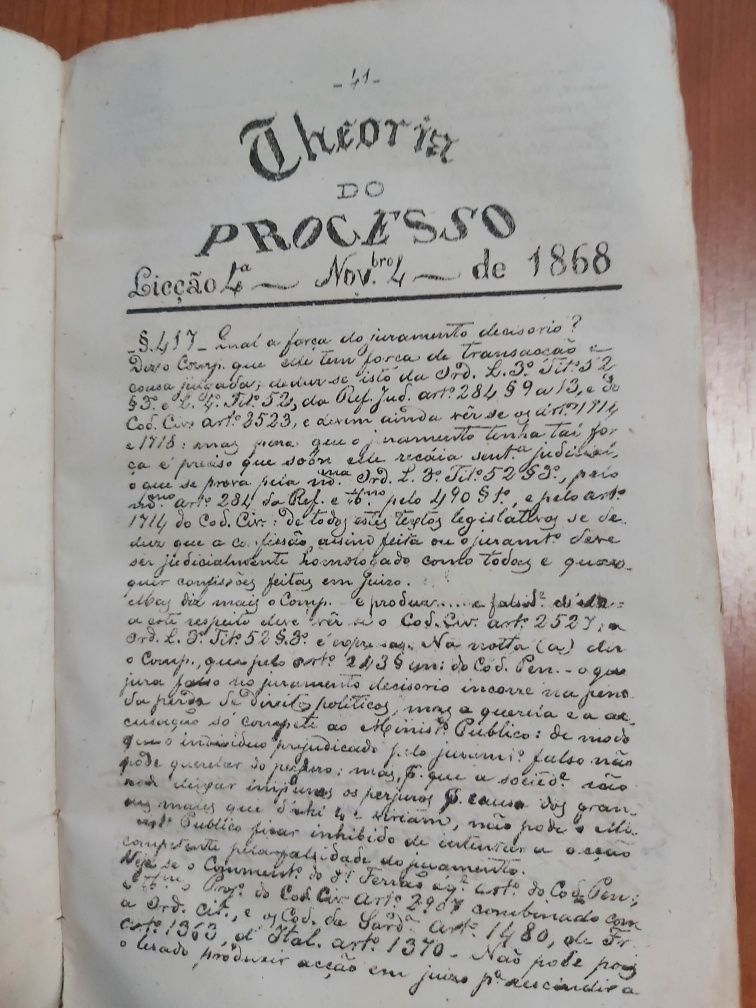 - 41 -
Theoria
DO
PROCESSO
Licção 4ª — Nov.bro 4 — de 1868
_§. 417_ Qual a força do juramento decisorio?
Diz o Comp. que elle tem força de transacção e
cousa julgada; deduz-se isto da Ord. L. 3º Tit.º 52
§ 3º e L. 4º Tit.º 52, da Ref. Jud. artº 284 § 9 a 13, e do
Cod. Civ. artº 2523, e devem ainda vêr-se os artºs 1714
e 1718: mas para que o juramento tenha tal for-
ça é preciso que sobre elle recáia sentª judicial,
o que se prova pela mª Ord. L. 3º Tit.º 52 § 3º, pelo
mmo artº 284 da Ref. e tbm pelo 490 § 1º, e pelo artº
1714 do Cod. Civ.: De todos estes textos legislativos se de-
duz que a confissão, assim feita ou o juramtº deve
ser judicialmente homologado como todas e quaes-
quer confissões feitas em Juizo.
Mas diz mais o Comp. e produz.... e falsidº
a este respeito deve vêr-se o Cod. Civ. artº 2527; a
Ord. L. 3º Tit.º 52 § 3º é expressa. Na notta (a) diz
o Comp., que pelo artº 243 § un: do Cod. Pen. - o que
jura falso no juramento decisorio incorre na pena
da perda de direitos politicos, mas a querela e a ac-
cusação só compete ao Ministº Publico: de modo
que o individuo prejudicado pelo juramtº falso não
póde querelar do perjuro; mas, p. que a sociedº não
deixar impunes os perjuros p. causa dos gran-
des males que d'ahi, não póde o Mi-
nistº Publico ficar inhibido de intentar a acção
competente pela falsidade do juramento.
Veja-se o Commentº do Dr Ferrão aqº artº do Cod. Pen;
o Projº do Cod. Civ. Artº 2967 combinado com
a Ord. citª, e os Cod. de Sardª Artº 1480, de Fr.
artº 1363, d'Ital. artº 1370 - Não póde pois
o lesado produzir acção em juizo pª rescindir a